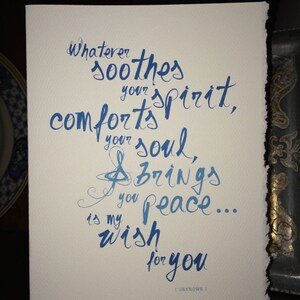 Whatever
soothes
your spirit,
comforts
your soul,
& brings
you peace...
is my
wish
for you
( UNKNOWN )